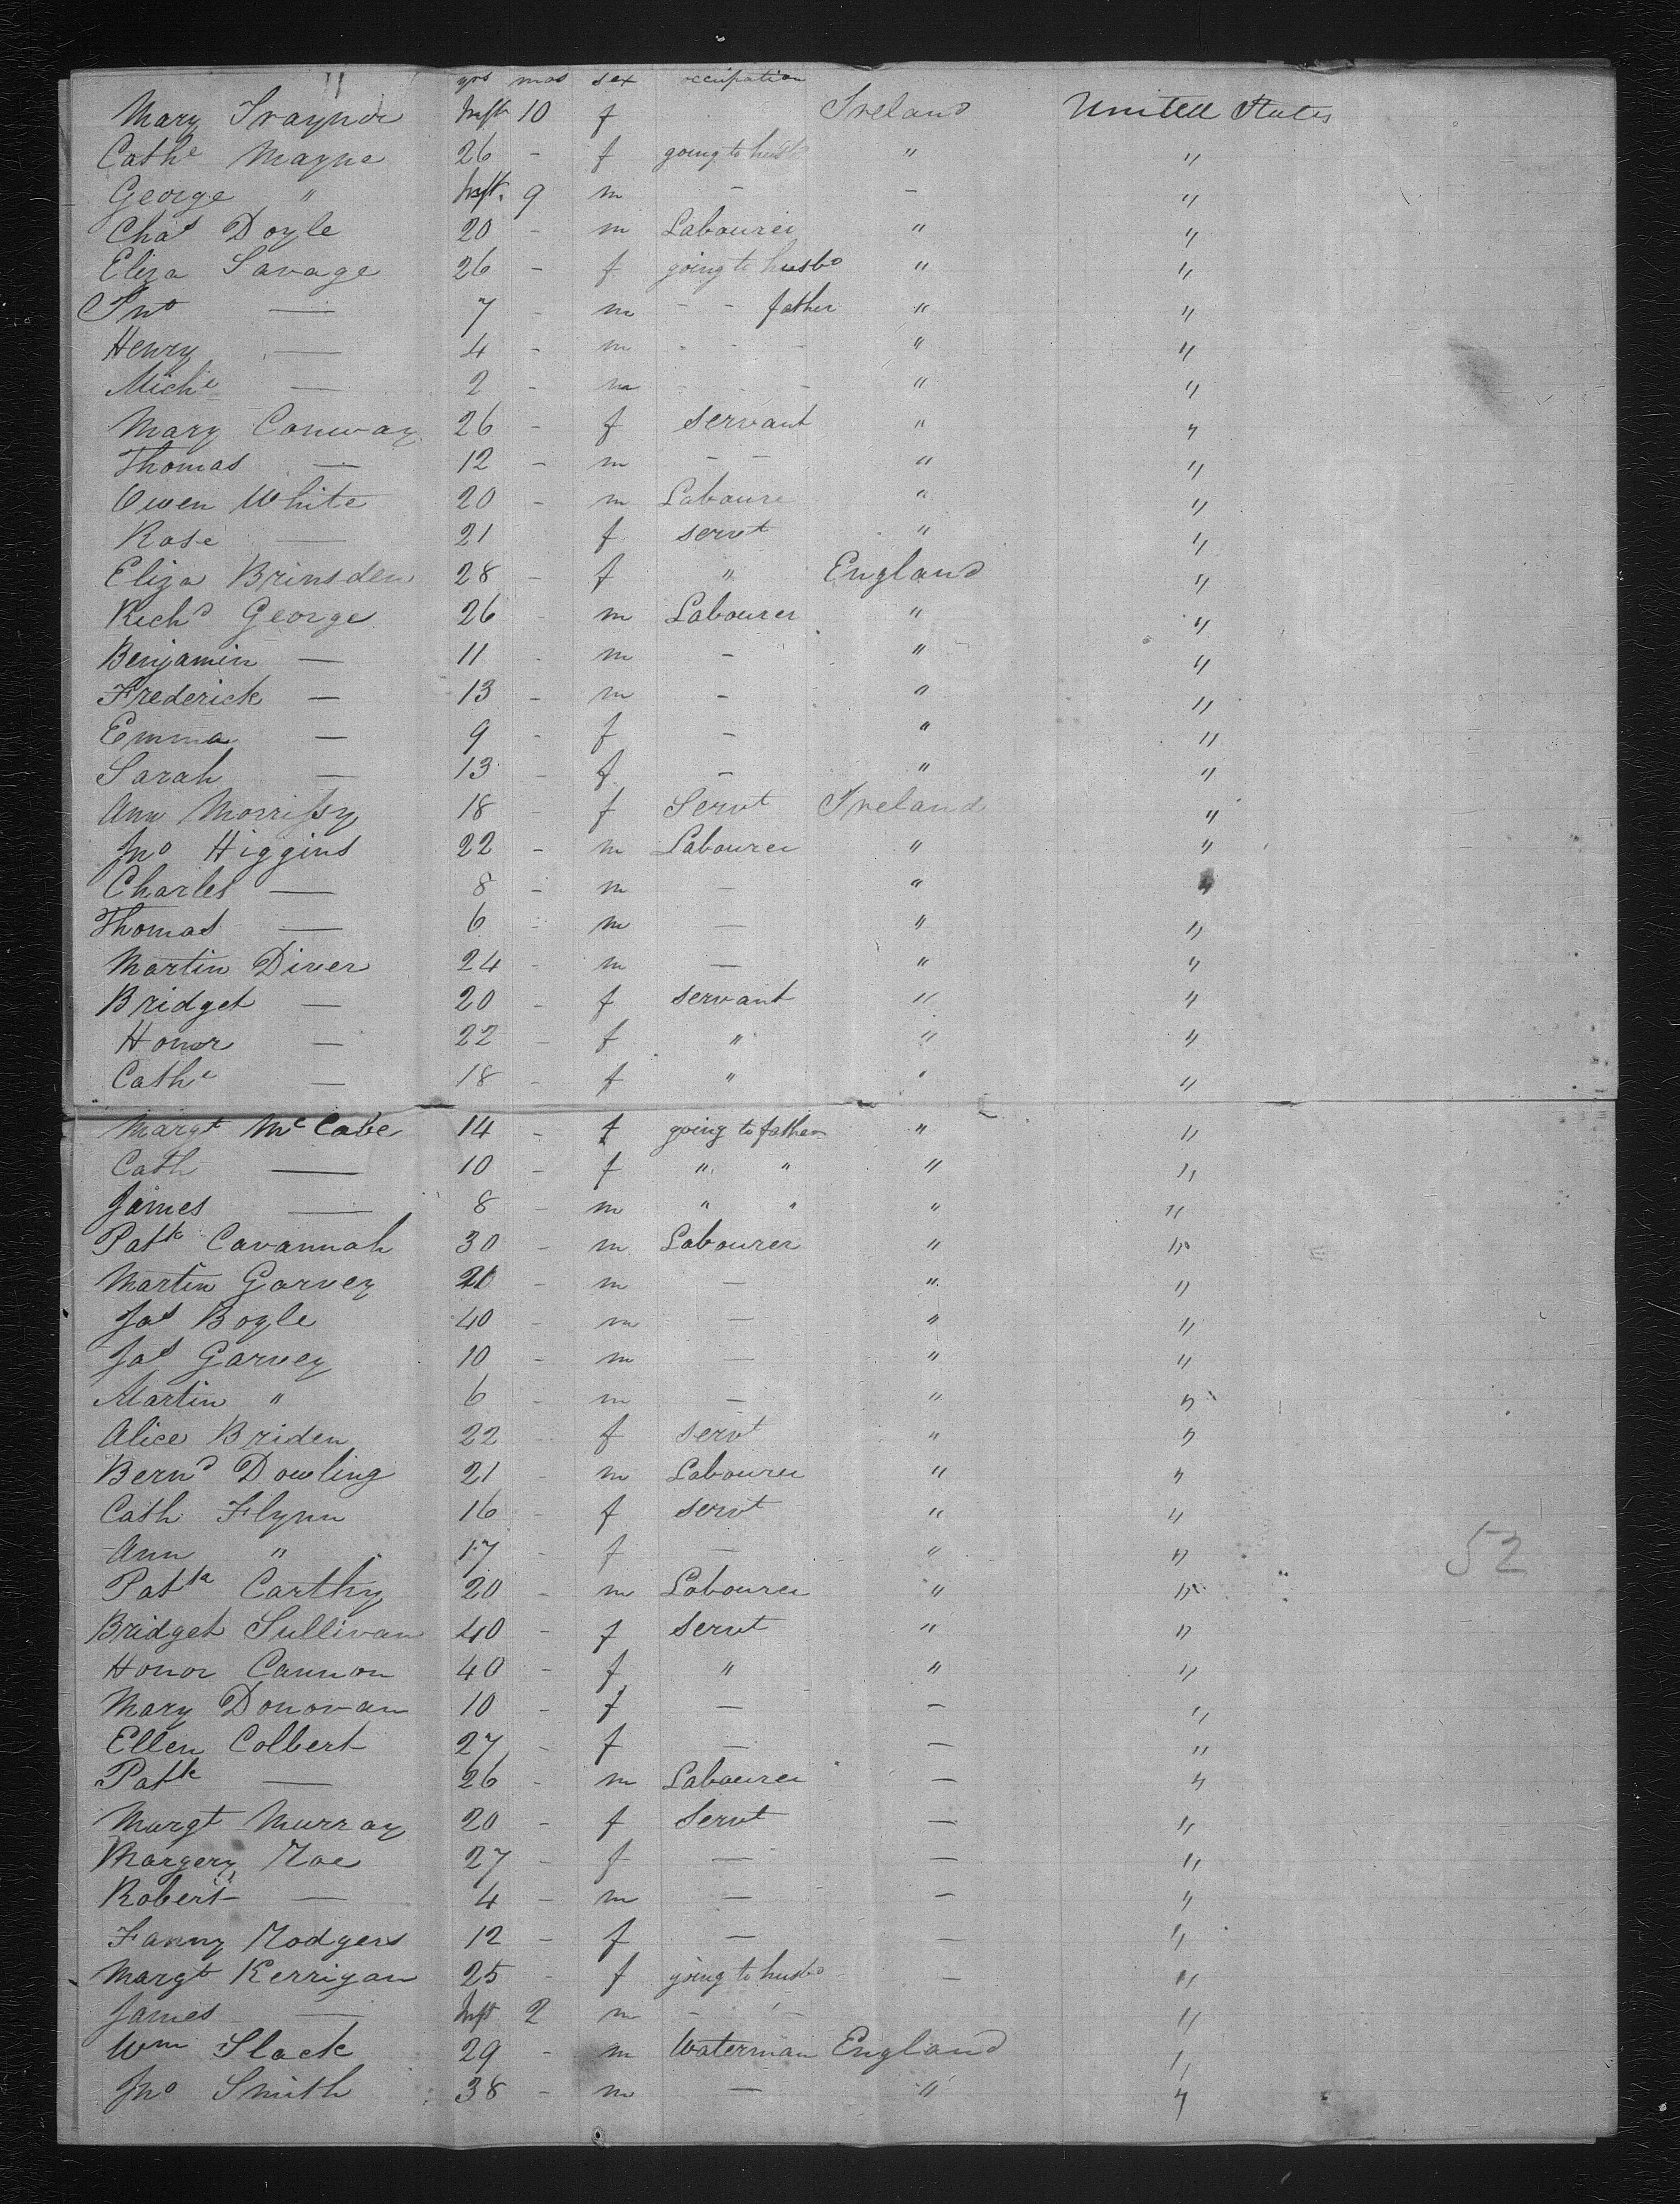 11 yrs mos sex occupation
Mary Traynor Inft 10 f Ireland United States
Cathe Mayne 26 - f going to husbd " "
George " Inft. 9 m - - "
Chas Doyle 20 - m Labourer " "
Eliza Savage 26 - f going to husbd " "
Jno — 7 - m - - father " "
Henry — 4 - m - - - " "
Michl — 2 - m - - - " "
Mary Conway 26 - f servant " "
Thomas — 12 - m - - " "
Owen White 20 - m Laboure " "
Rose — 21 f servt " "
Eliza Brinsden 28 - f " England "
Richd George 26 - m Labourer " "
Benjamin — 11 - m - " "
Frederick — 13 - m - " "
Emma — 9 - f - " "
Sarah — 13 - f - " "
Ann Morrissy 18 - f Servt Ireland "
Jno Higgins 22 - m Labourer " "
Charles — 8 - m — " "
Thomas — 6 - m — " "
Martin Diver 24 - m — " "
Bridget — 20 - f servant " "
Honor — 22 - f " " "
Cathe — 18 - f " " "
Margt McCabe 14 - f going to father " "
Cath — 10 - f " " " "
James — 8 - m " " " "
Patk Cavannah 30 - m Labourer " "
Martin Garvey - m — " "
Jas Boyle 40 - m — " "
Jas Garvey 10 - m — " "
Martin " 6 - m — " "
Alice Briden 22 - f servt " "
Bernd Dowling 21 - m Labourer " "
Cath Flynn 16 - f servt " "
Ann " 17 - f — " "
Patk Carthy 20 - m Labourer " "
52
Bridget Sullivan 40 - f servt " "
Honor Cannon 40 - f " " "
Mary Donovan 10 - f — — "
Ellen Colbert 27 - f — — "
Patk — 26 - m Labourer — "
Margt Murray 20 - f Servt — "
Margery Roe 27 - f — — "
Robert — 4 - m — — "
Fanny Rodgers 12 - f — — "
Margt Kerrigan 25 - f going to husbd — "
James — Inft 2 m - - "
Wm Slack 29 - m Waterman England "
Jno Smith 38 - m — " "